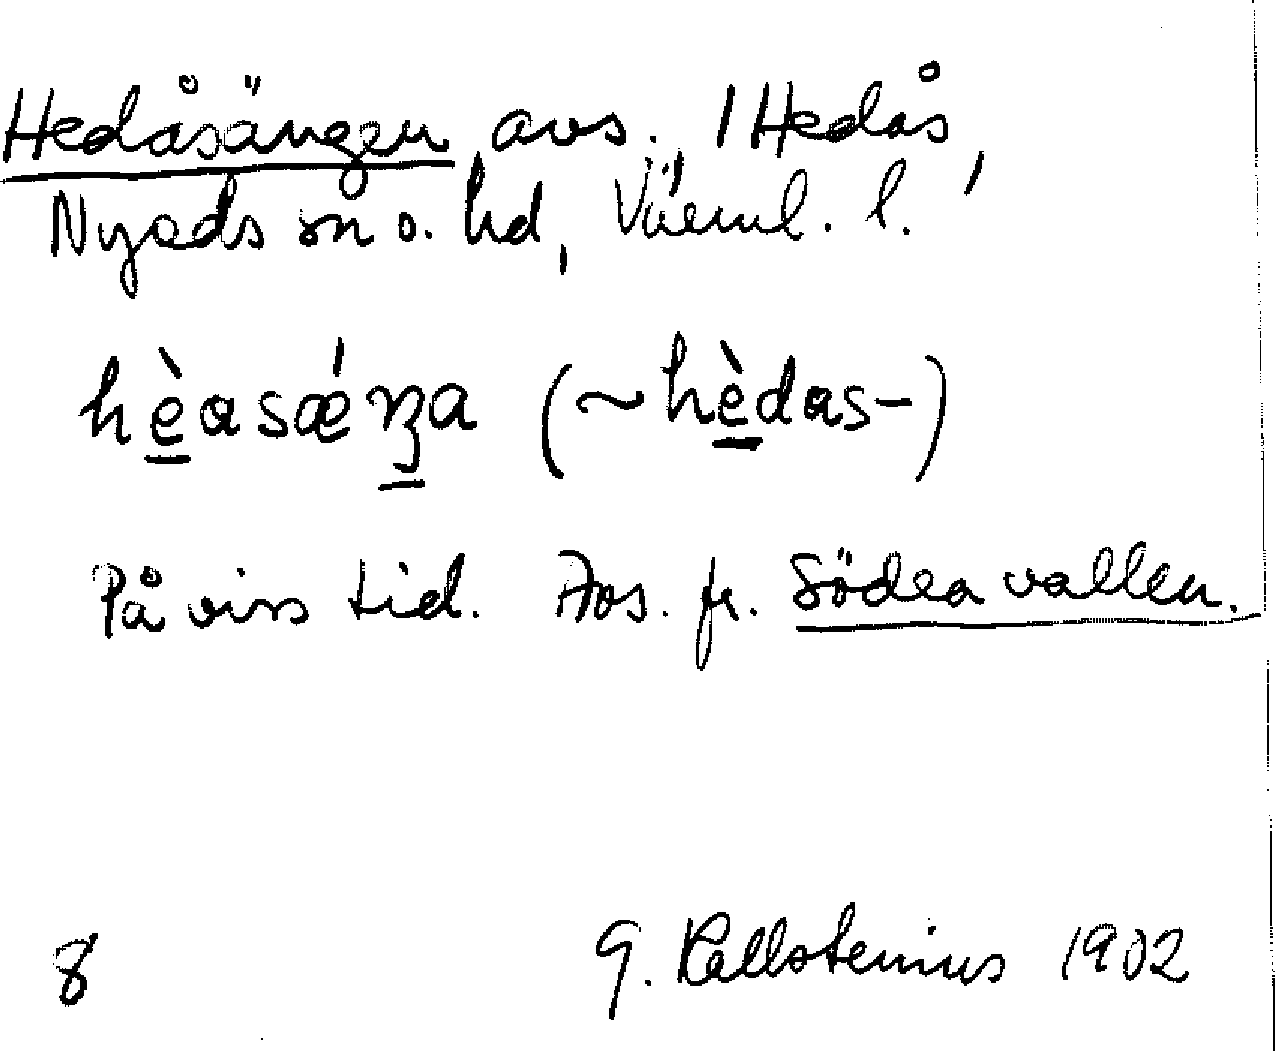 Hedåsängen avs. 1 Hedås,
Nyeds sn o. hd, Värml. l.
hèasǽŋa (~hèdas-)
På viss tid. Jos. fr. Södra vallen.
8 G. Kallstenius 1902